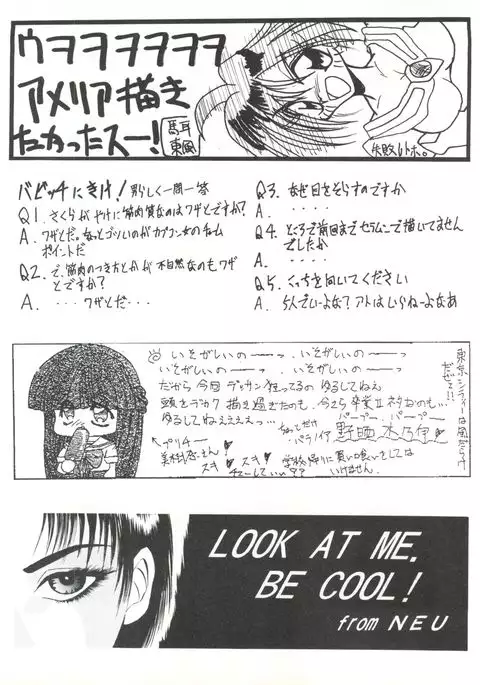 ウヲヲヲヲヲヲ
アメリア描き
たかったスー!
馬耳
東風
失敗
バビッチにきけ! 一問一答
Q1. さくらがやけに筋肉質なのはワザとですか?
A. ワザとだ。なっとゴツいのがカプコン女のチャーム
ポイントだ
Q2. で、筋肉のつき方とかが不自然なのもワザ
とですか?
A. ・・・・ワザとだ・・・
Q3. なぜ目をそらすのですか
A. ・・・・
Q4. ところで前回までセラムンで描いてません
でしたか
A. ・・・・
Q5. こっちを向いてください
A. 5人でいーよな?アトはいらねーよなあ
いそがしいの――っ、いそがしいの――っ
いそがしいの――っ、いそがしいの――っ
だから今回デッサン狂ってるのゆるしてねえ
頭をデカク描き過ぎたのも、今さら卒業Ⅱネタなのも…
ゆるしてねぇぇぇぇ…
ちょっとだけ
パラノイア
プリチー
スキ スキ
学校帰りに買い喰いをしては
いけません。
LOOK AT ME.
BE COOL!
from NEU